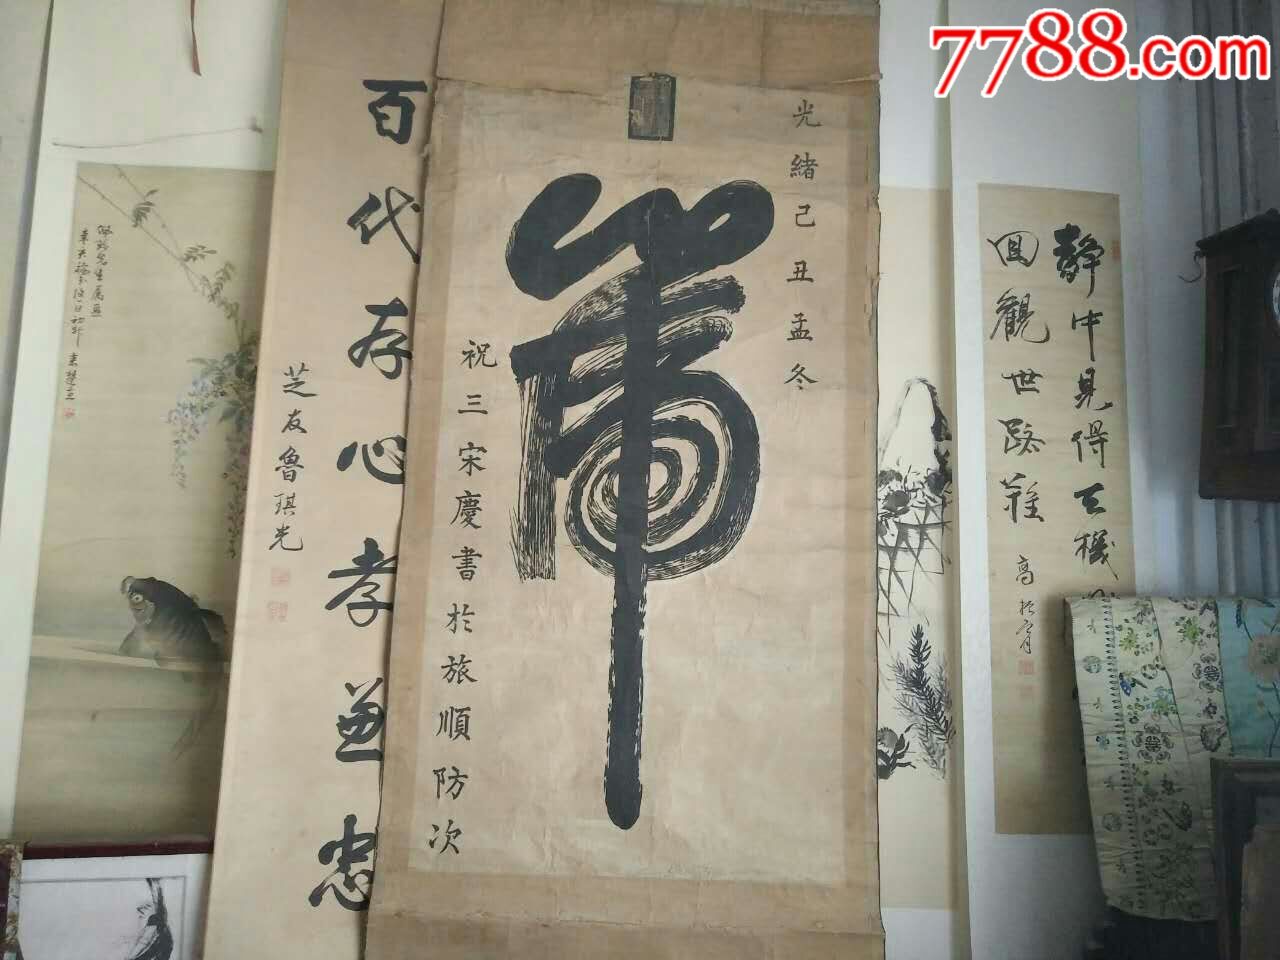 7788.com
光緒己丑孟冬
虎
祝三宋慶書於旅順防次
百代存心孝兼忠
芝友魯琪光
靜中見得天機
回觀世路難
高振霄